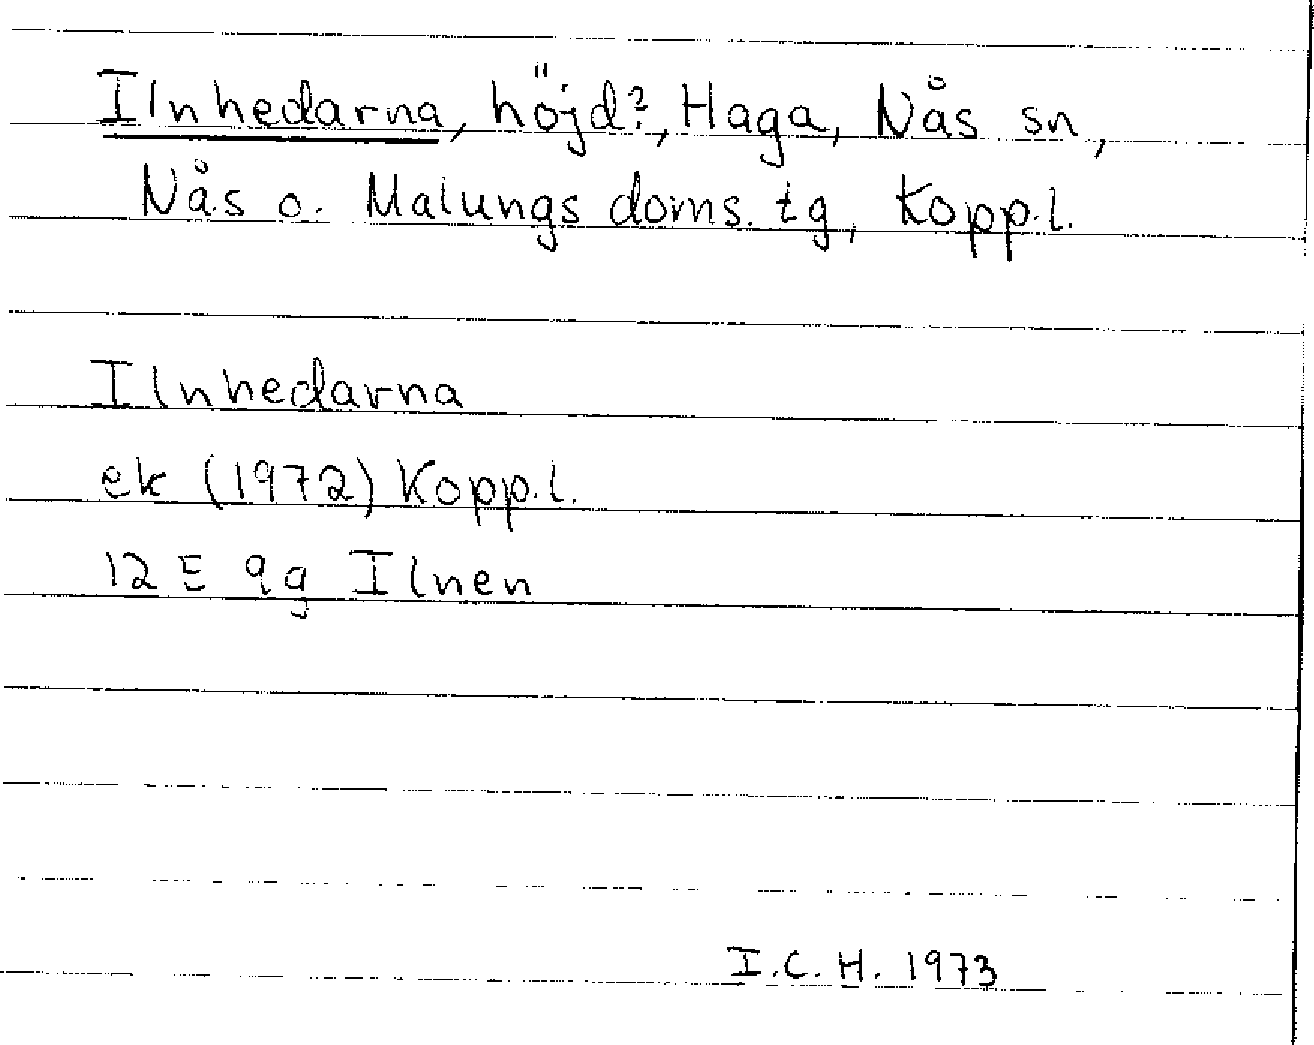 Ilnhedarna, höjd?, Haga, Nås sn,
Nås o. Malungs doms. tg, Kopp.l.
Ilnhedarna
ek (1972) Kopp.l.
12 E 9g Ilnen
I.C.H. 1973